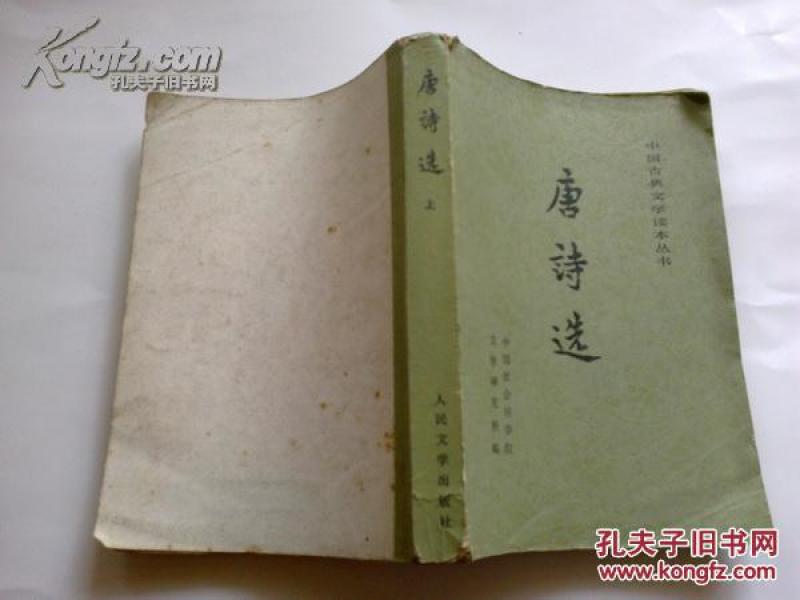 Kongfz.com
孔夫子旧书网
唐詩选
上
人民文学出版社
中国古典文学读本丛书
唐詩选
中国社会科学院
文学研究所编
孔夫子旧书网
www.kongfz.com